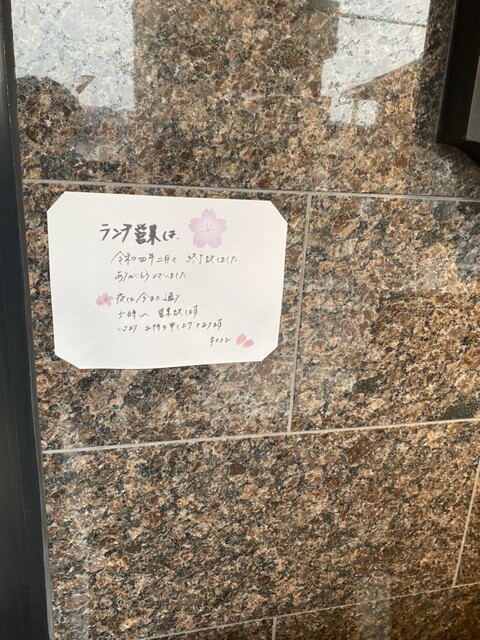 ランチ営業は、
令和四年二月で 終了致しました
ありがとうございました
夜は今まで通り
5時〜 営業致します
お待ち申し上げております